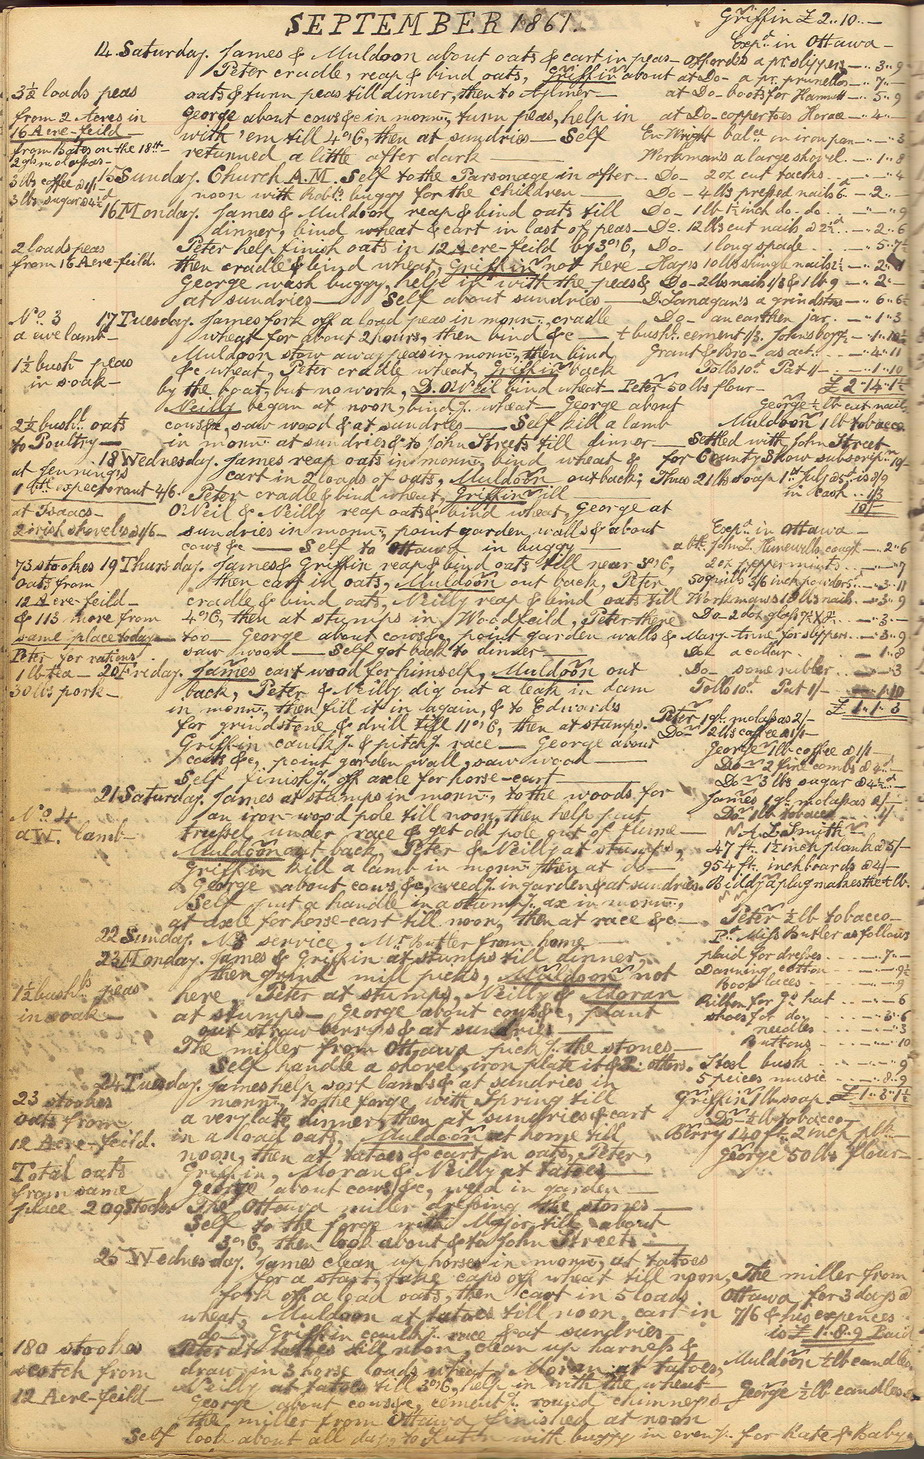 SEPTEMBER 1861.
Griffin £2..10..—
14 Saturday. James & Muldoon about oats & cart in peas—
Peter cradle, reap & bind oats, Griffin about
oats & turn peas till dinner, then to Aylmer—
George about cows &c in morng, turn peas, help in
with 'em till 4 o'6, then at sundries — Self
returned a little after dark
3½ loads peas
from 2 Acres in
16 Acre-feild—
from Bates on the 18th
2 gls molasses—
3 lbs coffee @ 1/-
3 lbs sugar @ 4½d
15 Sunday. Church A.M. Self to the Parsonage in after-
noon with Robt's buggy for the children—
16 Monday. James & Muldoon reap & bind oats till
dinner, bind wheat & cart in last of peas—
Peter help finish oats in 12 Acre-feild by 3 o'6,
then cradle & bind wheat, Griffin not here—
George wash buggy, help in with the peas &
at sundries— Self about sundries—
2 loads peas
from 16 Acre-feild.
17 Tuesday. James fork off a load peas in morng, cradle
wheat for about 2 hours, then bind &c—
Muldoon stow away peas in morng, then bind
&c wheat, Peter cradle wheat, Griffin back
by the boat, but no work, D. O'Neil bind wheat—
Neilly began at noon, bindg wheat— George about
cows &c, saw wood & at sundries— Self kill a lamb
in morng at sundries & to John Streets till dinner—
No. 3
a ewe lamb—
1½ bush. peas
in soak—
2½ bushl. oats
to Poultry—
18 Wednesday. James reap oats in morng, bind wheat &
cart in 2 loads of oats, Muldoon out back,
Peter cradle & bind wheat, Griffin ill
O'Neil & Neilly reap oats & bind wheat, George at
sundries in morng, point garden walls & about
cows &c — Self to Ottawa in buggy
at Jenning's
1 btle expectorant 2/6.
at Isaacs—
2 irish shovels @ /6—
19 Thursday. James & Griffin reap & bind oats till near 3 o'6,
then cart in oats, Muldoon out back, Peter
cradle & bind oats, Neilly reap & bind oats till
4 o'6, then at stumps in Woodfeild, Peter there
too— George about cows &c, point garden walls &
saw wood— Self got back to dinner—
73 stookes
oats from
12 Acre-feild—
& 113 more from
same place today—
Peter for rations
1 lb tea—
30 lbs pork—
20 Friday. James cart wood for himself, Muldoon out
back, Peter & Neilly dig out a leak in dam
in morng, then fill it in again, & to Edwards
for grindstone & drill till 11 o'6, then at stumps.
Griffin caulkg & pitchg race— George about
cows &c, point garden wall, saw wood—
Self finishg off axle for horse-cart—
21 Saturday. James at stumps in morng, to the woods for
an iron-wood pole till noon, then help put
tressel under race & get old pole out of flume—
Muldoon out back, Peter & Neilly at stumps,
Griffin kill a lamb in morng then at do—
George about cows &c, weedg in garden & at sundries
Self put a handle in a stumpg ax in morng,
at axle for horse-cart till noon, then at race &c—
No. 4
a W. lamb—
22 Sunday. No service, Mr. Butler from home—
23 Monday. James & Griffin at stumps till dinner,
then grind mill picks, Muldoon not
here, Peter at stumps, Neilly & Moran
at stumps— George about cows &c, plant
out straw berrys & at sundries—
The miller from Ottawa pickg the stones—
Self handle a shovel, iron plate it & 2 others.
1½ bushls peas
in soak—
24 Tuesday. James help sort lambs & at sundries in
morng, to the forge with Spring till
a very late dinner, then at sundries & cart
in a load oats, Muldoon at home till
noon, then at tatoes & cart in oats, Peter,
Griffin, Moran & Neilly at tatoes—
George about cows &c, weed in garden—
The Ottawa miller dressing the stones—
Self to the forge with Major till about
3 o'6, then look about & to John Streets—
23 stookes
oats from
12 Acre-feild.
Total oats
from same
place 209 stooks
25 Wednesday. James clean up horses in morng, at tatoes
for a start, take caps off wheat till noon,
fork off a load oats, then cart in 5 loads
wheat, Muldoon at tatoes till noon, cart in
do— Griffin caulkg race & at sundries—
Peter at tatoes till noon, clean up harness &
draw in 3 horse loads wheat, Moran at tatoes,
Neilly at tatoes till 3 o'6, help in with the wheat—
George about cows &c, cementg round chimneys
the miller from Ottawa finished at noon
Self look about all day, to Hutton with buggy in eveng. for Kate & Baby
180 stookes
scotch from
12 Acre-feild—
Expd in Ottawa—
Offords a pr slippers — ..3..9
at Do— a pr. prunellas — ..7..—
at Do— boots for Hannett — ..5..9
at Do— copperties Horae — ..4..—
Em Wright balce on iron pan — ..3
Workman's a large shovel — ..1..8
Do— 2 oz cut tacks — ..4
Do— 4 lbs pressed nails 6 — 2..—
Do— 1 lb ½ inch do.. do — ..9
Do— 12 lbs cut nails @ 2½d — 2..6
Do— 1 long spade — 5..7½
Hays 10 lbs shingle nails 2½
Do— 2 lbs nails /3 & 1 lb 9 — 2..—
D. Lanagan's a grindstone — 6..6½
Do— an earthen jar — ..1..3
½ bushl. cement /3, Johns borgg — 1..10½
Grant & Bro— as act. — 4..11
Tolls 10d. Put 1/— — 1..10
£2..14..1½
Peter 50 lbs flour—
George ½ lb cut nails
Muldoon 1 lb tobacco
Settled with John Street
for County Show subscripn 10/—
Thro 21 lbs soap 1st July 25th is 8/9
in Cash .. 1/3
10/—
Expd in Ottawa—
a btle John L. Hunewells cough — 2..6
2 oz peppermints — ..7
50 quills 3/6 inch powders — 3..11
Workmans 18 lbs nails — 3..9
Do— 2 doz glass 7x9 — 3..—
Mary-time for slippers — 3..9
Do— a collar — 1..8
Do— some rubber — ..3
Tolls 10d Put 1/— — 1..10
£1..1..3
Peter 1 gl. molasses 2/—
Do— 2 lbs coffee @ 1/—
George 1 lb coffee @ 1/—
Do— 2 fine combs @ 4d
Do— 3 lbs sugar @ 4½d
James 1 gl. molasses 2/—
Do— 1 lb tobacco 1/—
N. A. L. Smyth
47 ft. 1½ inch plank @ 5/—
954 ft. inch boards @ 4/—
Biddy a plug makes the ½ lb.
Peter ½ lb tobacco—
Pd Miss Butler as follows
plaid for dress — ..7..—
Darning cotton — 9½
Boot laces — ..9
Ribbon for gl hat — ..6
shoes for do — 3..6
needles — ..3
Buttons — ..10
Steel busk — ..9
5 peices music — 8..9
£1..3..1½
Griffin 1 lb soap
Do— ½ lb tobacco
Berry 140 ft. 2 inch plk—
George 50 lbs flour—
The miller from
Ottawa for 3 days @
7/6 & his expences
is £1..8..9 Paid
Muldoon ½ lb candles
George ½ lb candles